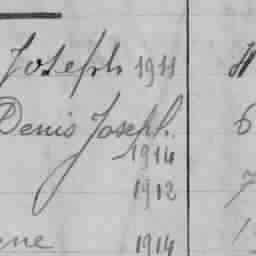 Joseph 1911
Denis Joseph. 6
1914
1912 7
gne 1914